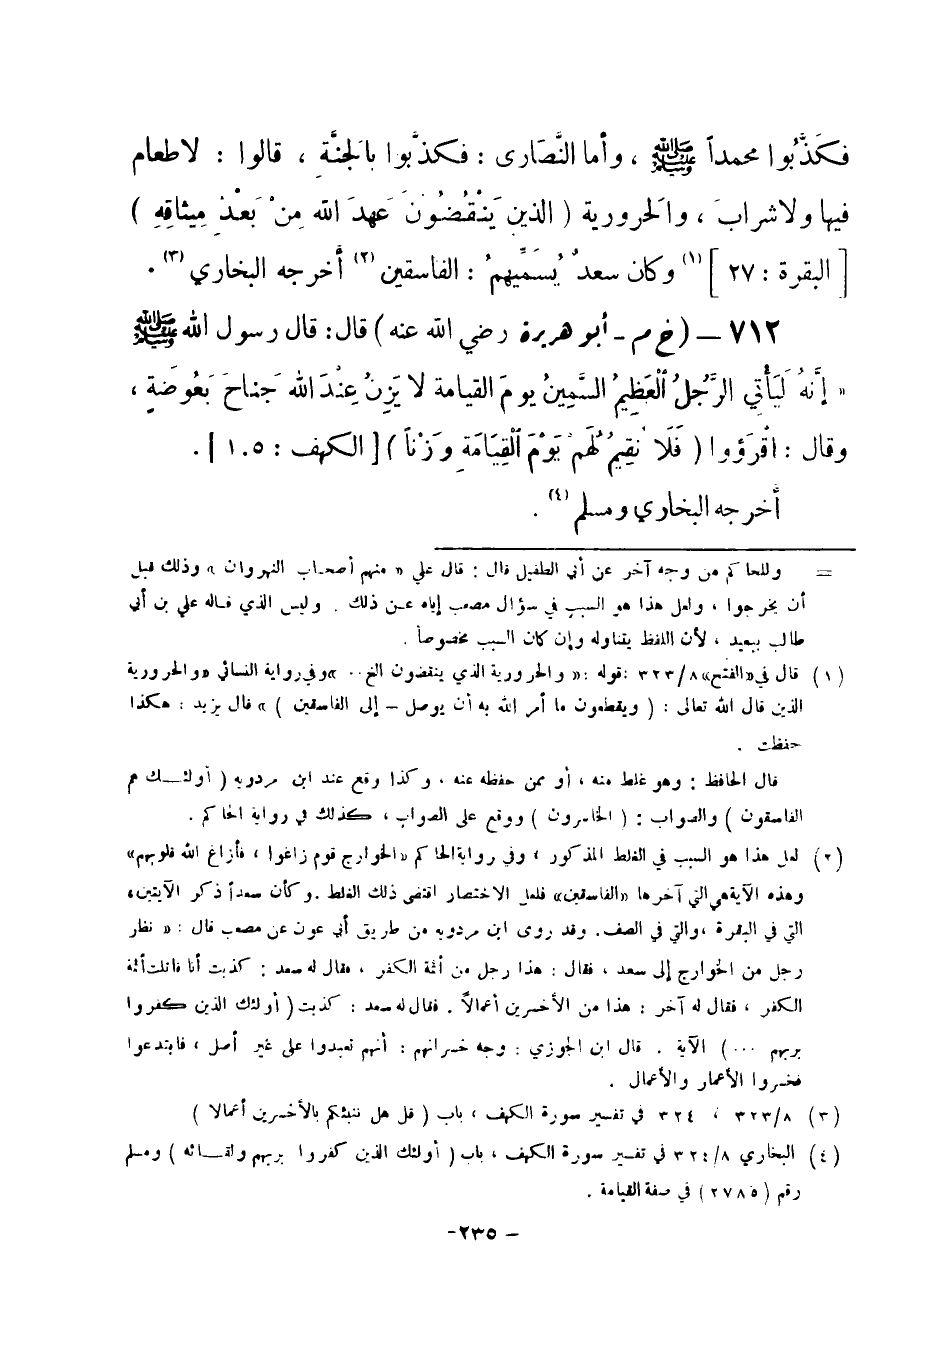 فكَذَّبُوا محمداً ﷺ ، وأما النَّصارى : فكذَّبوا بالجنَّةِ ، قالوا : لا طعام
فيها ولا شرابَ ، والحرورية ( الذين يَنْقُضُونَ عَهدَ اللهِ مِنْ بَعدْ مِيثاقِهِ )
[ البقرة : ٢٧ ] (١) وكان سعدٌ يُسَمِّيهِمُ : الفاسقين (٢) أخرجه البخاري (٣) .
٧١٢ – ( خ م – أبو هريرة رضي الله عنه ) قال : قال رسول الله ﷺ
« إنَّهُ لَيَأْتي الرَّجُلُ الْعَظِيمُ السَّمِينُ يومَ القيامة لا يَزِنُ عِنْدَ اللهِ جَناحَ بَعُوضَةٍ ،
وقال : اقْرَؤوا ( فَلَا نُقِيمُ لَهُمْ يَوْمَ الْقِيَامَةِ وَزْناً ) [ الكهف : ١٠٥ ] .
أخرجه البخاري ومسلم (٤) .
= وللحاكم من وجه آخر عن أبي الطفيل قال : قال علي « منهم أصحاب النهروان » وذلك قبل
أن يخرجوا ، ولعل هذا هو السبب في سؤال مصعب إياه عن ذلك . وليس الذي قاله علي بن أبي
طالب ببعيد ، لأن اللفظ يتناوله وإن كان السبب مخصوصاً .
(١) قال في «الفتح» ٣٢٣/٨ : قوله : « والحرورية الذي ينقضون الخ .. » وفي رواية النسائي «والحرورية
الذين قال الله تعالى : ( ويقطعون ما أمر الله به أن يوصل – إلى الفاسقين ) » قال يزيد : هكذا
حفظت .
قال الحافظ : وهو غلط منه ، أو ممن حفظه عنه ، وكذا وقع عند ابن مردويه ( أولئك هم
الفاسقون ) والصواب : ( الخاسرون ) ووقع على الصواب ، كذلك في رواية الحاكم .
(٢) لعل هذا هو السبب في الغلط المذكور ، وفي رواية الحاكم «الخوارج قوم زاغوا ، فأزاغ الله قلوبهم»
وهذه الآية هي التي آخرها «الفاسقين» فلعل الاختصار اقتضى ذلك الغلط . وكأن سعداً ذكر الآيتين ،
التي في البقرة ، والتي في الصف . وقد روى ابن مردويه من طريق أبي عون عن مصعب قال : « نظر
رجل من الخوارج إلى سعد ، فقال : هذا رجل من أئمة الكفر ، فقال له سعد : كذبت أنا قاتلت أئمة
الكفر ، فقال له آخر : هذا من الأخسرين أعمالاً . فقال له سعد : كذبت ( أولئك الذين كفروا
بربهم ... ) الآية . قال ابن الجوزي : وجه خسرانهم : أنهم تعبدوا على غير أصل ، فابتدعوا
فخسروا الأعمار والأعمال .
(٣) ٣٢٣/٨ ، ٣٢٤ في تفسير سورة الكهف ، باب ( قل هل ننبئكم بالأخسرين أعمالا )
(٤) البخاري ٣٢٤/٨ في تفسير سورة الكهف ، باب ( أولئك الذين كفروا بربهم ولقائه ) ومسلم
رقم ( ٢٧٨٥ ) في صفة القيامة .
– ٢٣٥ –